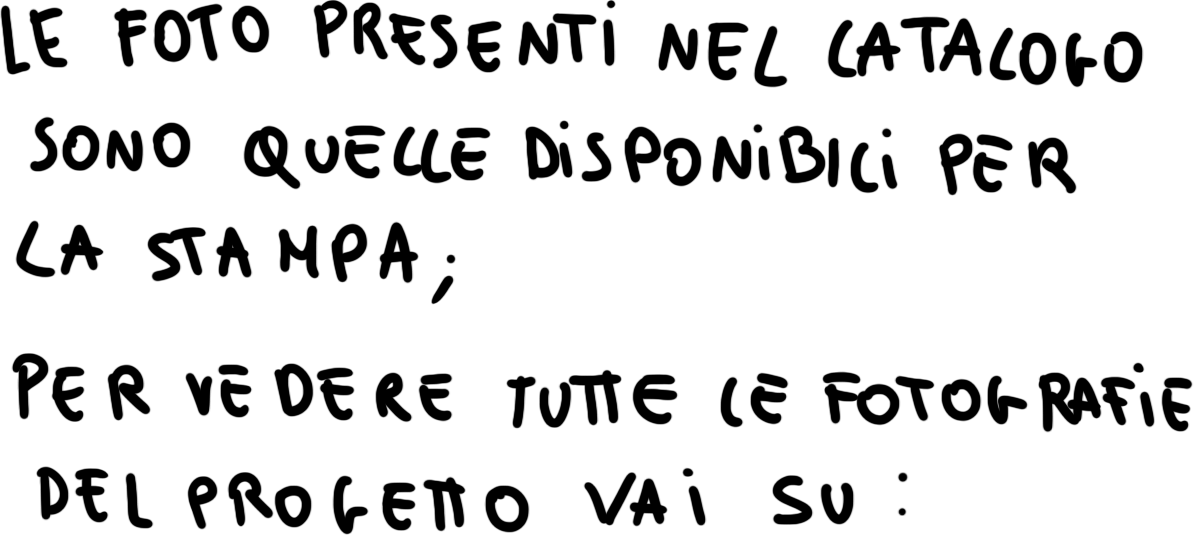 LE FOTO PRESENTI NEL CATALOGO
SONO QUELLE DISPONIBILI PER
LA STAMPA;
PER VEDERE TUTTE LE FOTOGRAFIE
DEL PROGETTO VAI SU: